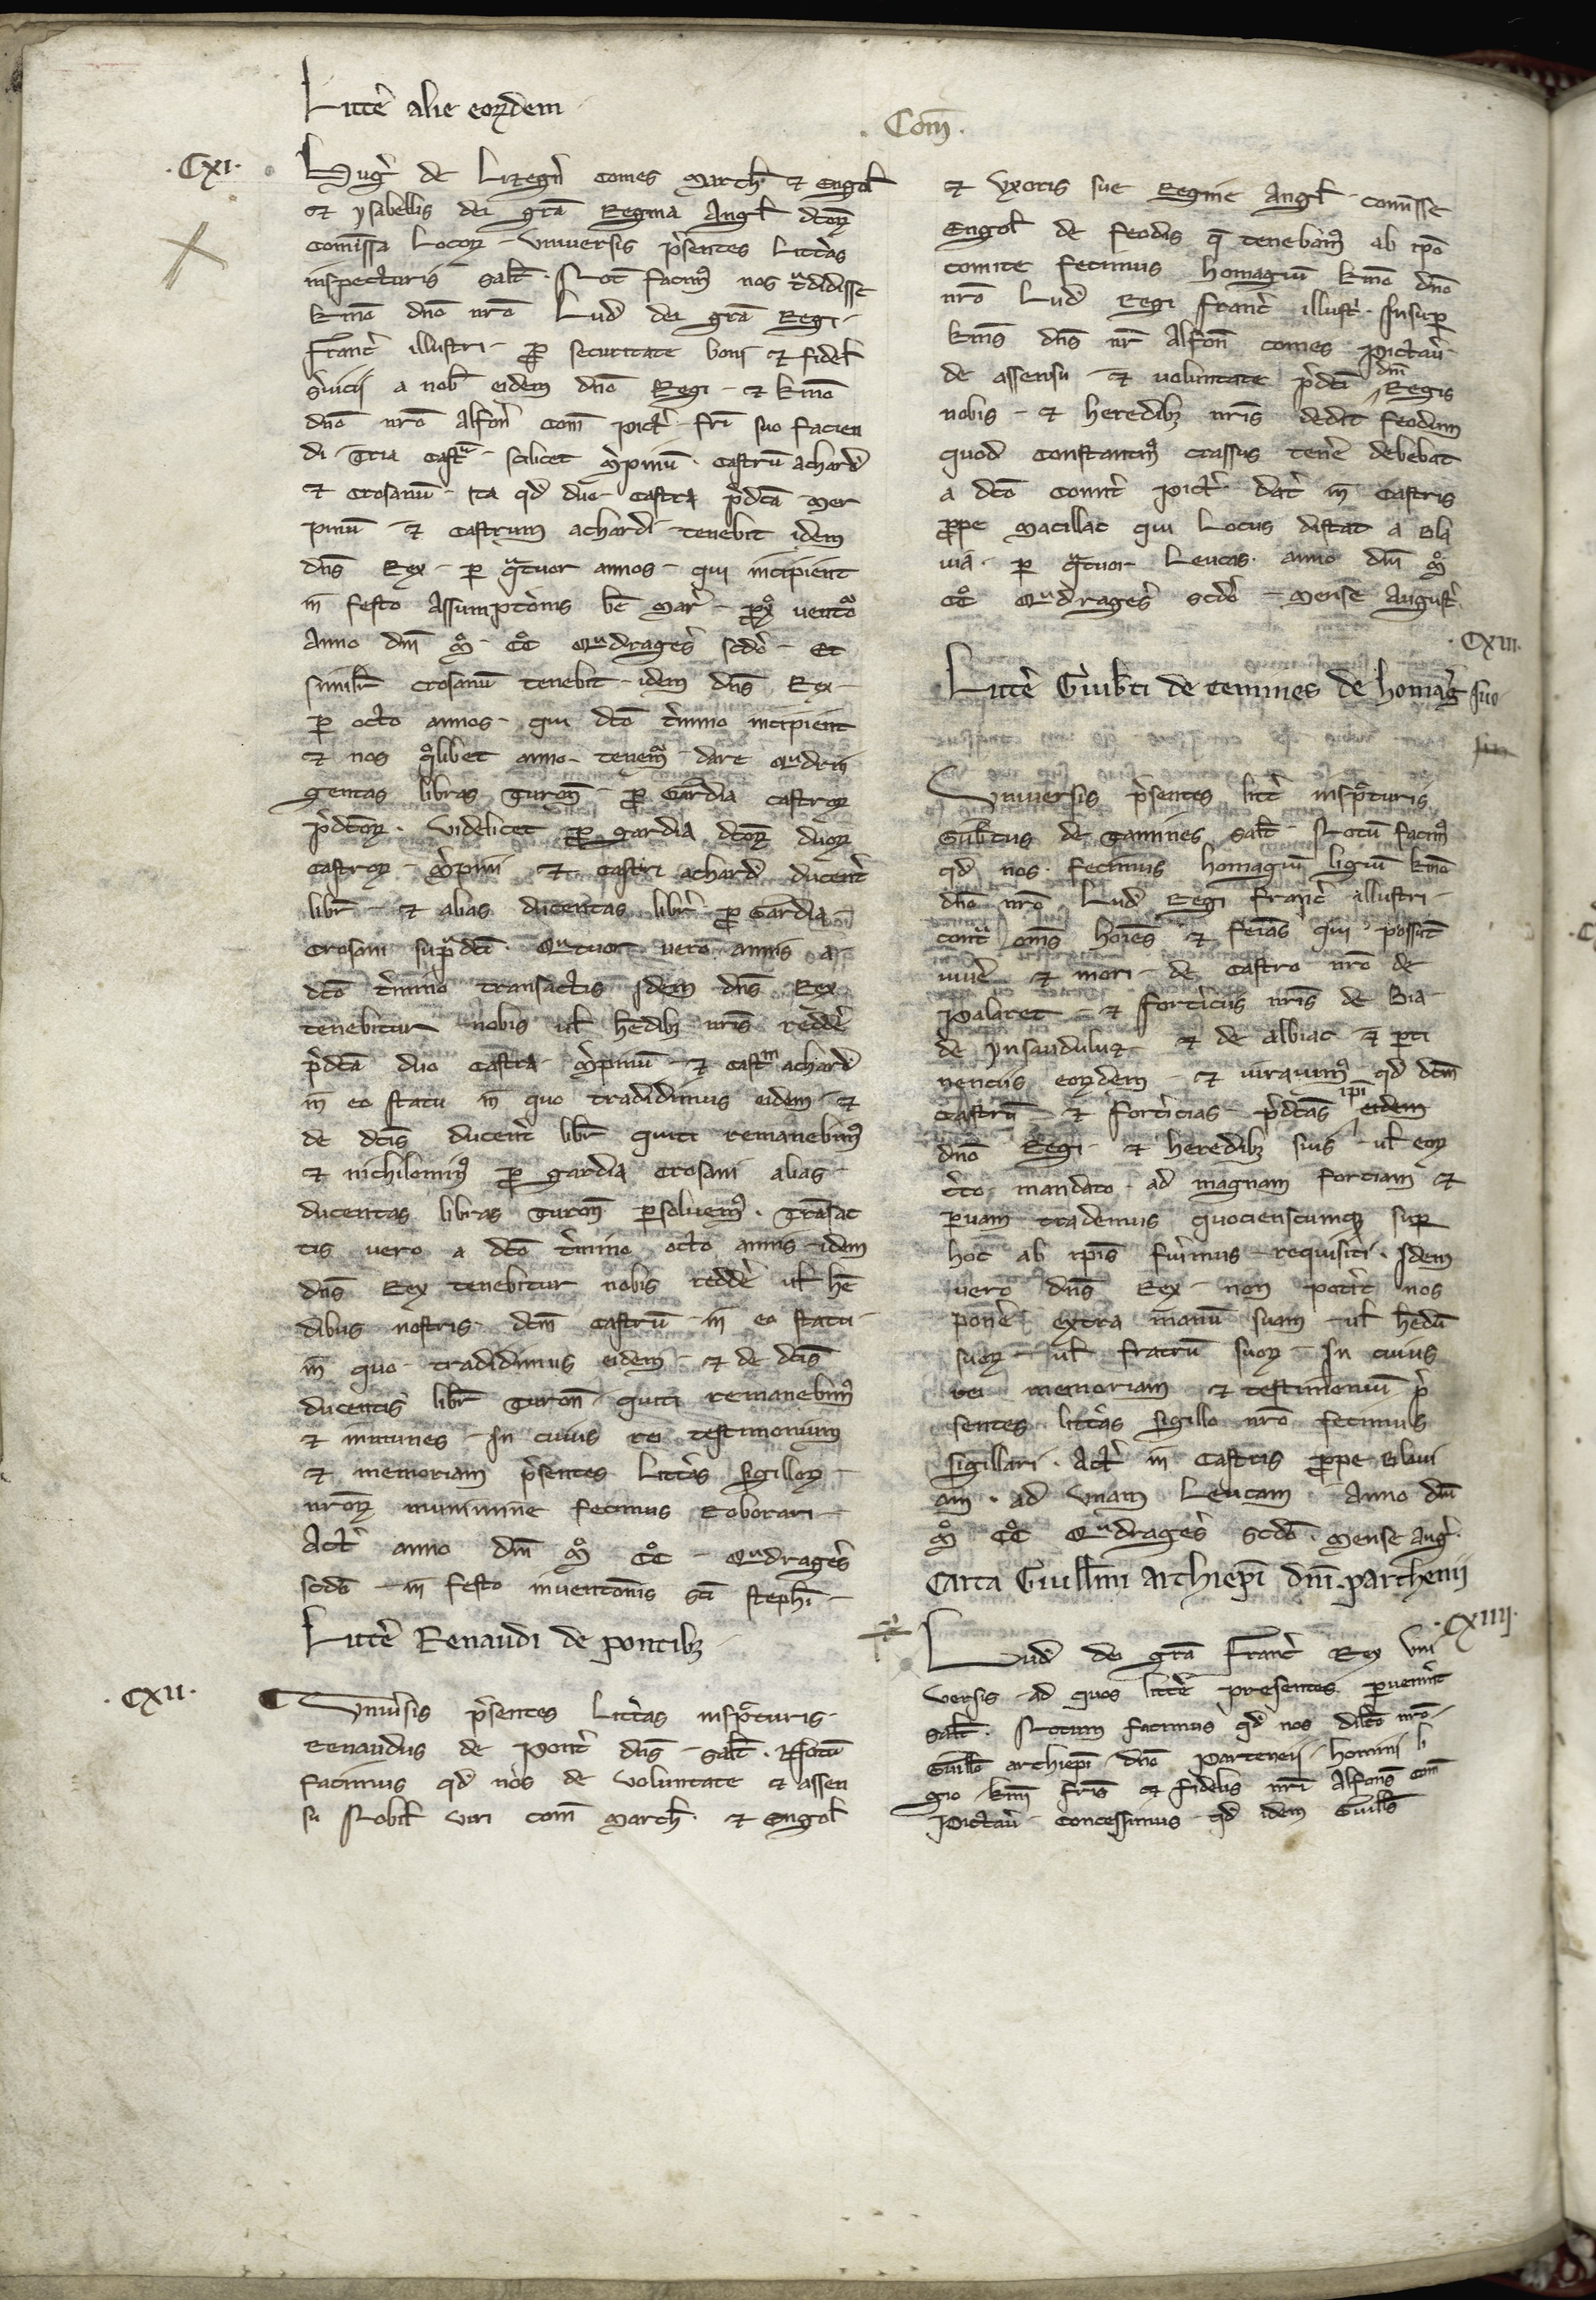 Litt̄e alie eoꝝdem
.Com̄.
.CXI.
Huḡ de Lizegñ comes march̄. ⁊ Engol̄
⁊ ysabellis dei gr̄a Regina Angl̄ dc̄oꝝ
comitissa Locoꝝ - vniuersis p̄sentes Litt̄as
inspecturis salt̄. Not̄ facim⁹ nos t̄didisse
kmō dn̄o nr̄o Lud̄ dei gr̄a Regi -
Franc̄ illustri - ꝓ securitate boni ⁊ fidel̄
s̄uicii a nob̄ eidem dn̄o Regi - ⁊ kmō
dn̄o nr̄o Alfon̄ com̄ pict̄. fr̄i suo facien
di. Tria cast̄ - scilicet m̄pinū. castrū achard̄
⁊ crosanū - ita qd̄ duo castra p̄dc̄a mer
pinū - ⁊ castrum achardi - tenebit idem
dn̄s Rex - ꝑ q̄tuor annos - qui incipient
in̄ festo Assumpt̄onis be͞ mar̄ - ꝓx° vent̄o
Anno dn̄i m̊. cc̊ Qudrages̄ scd̄o - Et
similit̄ crosanū tenebit - idem dn̄s Rex -
ꝑ octo annos - qui dc̄o t̄mino incipient
⁊ nos q°libet anno - tenem̄ - dare Qudrin
gentas libras Turon̄ - ꝓ Gardia castroꝝ
p̄dc̄oꝝ. videlicet ꝓ gardia dc̄oꝝ duoꝝ
castroꝝ - m̄pini ⁊ castri achard̄ ducent̄
libr̄ - ⁊ alias ducentas libr̄ - ꝓ Gardia -
crosani sup̄dc̄i. Qutuor vero annis a -
dc̄o t̄mino transactis idem dn̄s Rex
tenebitur nobis ul̄ h̄edibꝫ nr̄is redd̄e
p̄dc̄a duo castra m̄pinū - ⁊ castm achard̄
in̄ eo statu in̄ quo tradidimus eidem - ⁊
de dc̄is ducent̄ libr̄ quiti remanebim⁹
⁊ nichilomin⁹ ꝓ gardia crosani alias -
ducentas libras Turon̄ ꝑsoluem⁹. Trāsac
tis vero a dc̄o t̄mino octo annis - idem
dn̄s Rex tenebitur nobis redd̄e ul̄ he͞
dibus nostris. dc̄m castrū - in̄ eo statu -
in̄ quo - tradidimus eidem - ⁊ de dc̄is
ducentis libr̄ Turon̄ quiti remanebim⁹
⁊ inmunes - In cuius rei testimonium
⁊ memoriam p̄sentes Litt̄as sigilloꝝ -
nr̄oꝝ munimine fecimus roborari -
Act̄ anno dn̄i m̊ cc̊ - Qudrages̄
scd̄o - in̄ festo inuent̄onis sc̄i steph̄i -
Litt̄e Renaudi de pontibꝫ
.CXII.
Vniu̅sis p̄sentes Litt̄as insp̄cturis -
Renaudus de Pont̄ dn̄s - salt̄. Notū
facimus qd̄ nos de voluntate ⁊ assen
su Nobil̄ viri com̄ march̄. ⁊ Engol̄
⁊ vxoris sue Regine Angl̄ - comit̄isse
Engol̄ de feodis q̄ tenebam⁹ ab ip̄o
comite fecimus homagiū kmō dn̄o
nr̄o Lud̄ Regi franc̄ illustr̄. Insuꝑ
km̄s dn̄s nr̄ Alfon̄ comes Pictau̅ -
de assensu - ⁊ voluntate p̄dc̄i dn̄i Regis
nobis - ⁊ heredibꝫ nr̄is dedit feodum
quod Constantin⁹ crassus ten̄e debebat
a dc̄o comit̄ pict̄. dat̄ in̄ castris
ꝓpe macillac qui Locus distat a Bla
uia. ꝑ q̄tuor Leucas. anno dn̄i m̊
cc̊ Qudrages̄ scd̄o - mense August̄.
.CXIII.
Litt̄e Guib̄ti de temines de homaḡ suo
Vniuersis p̄sentes litt̄ insp̄cturis
Guib̄tus de Tamines salt̄ - Notū facim⁹
qd̄ nos. fecimus homagiū ligiū kmō
dn̄o nr̄o Lud̄ Regi franc̄ illustri -
cont̄ om̄s hoīes ⁊ feīas qui possūt
viue̅ ⁊ mori - de castro nr̄o de
Palaret - ⁊ fort̄icijs nr̄is de Bia -
de ynsaudulus ⁊ de albiac ⁊ ꝑti
nenciis eoꝝdem - ⁊ iurauim⁹ qd̄ dc̄m
castrū - ⁊ fort̄icias - p̄dc̄as ip̄i eidem
dn̄o Regi - ⁊ heredibꝫ suis - ul̄ eoꝝ
c̄to mandato - ad magnam forciam ⁊
ꝑuam trademus quociensc̄umqꝫ suꝑ
hoc ab ip̄is fu̅imus - requisiti. Idem
vero dn̄s Rex - non pot̄it nos
pon̄e extra manū suam - ul̄ h̄edū
suoꝝ - ul̄ fratrū suoꝝ - In cuius
rei memoriam ⁊ testimoniū p̄
sentes litt̄as sigillo nr̄o fecimus
sigillari. Act̄ in̄ castris ꝓpe Blaui
am. ad vnam Leucam. Anno dn̄i
m̊ cc̊ Qudrages̄ scd̄o. mense auḡ.
Carta Guill̄mi Archiep̄i dn̄i parthenii
.CXIIII.
Lud̄ dei gr̄a Franc̄ Rex vni
versis - ad quos litt̄e presentes ꝑuen̄int
salt̄. Notum facimus qd̄ nos dilc̄o nr̄o -
Guill̄o archiep̄i - dn̄o Partenii - homini li
gio - km̄i fr̄is ⁊ fidelis nr̄i Alfons̄ com̄
Pictau̅ - concessimus - qd̄ idem Guill̄s